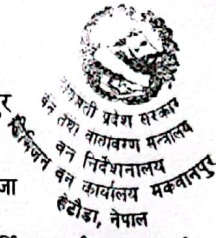 बागमती प्रदेश सरकार
वन तथा वातावरण मन्त्रालय
वन निर्देशनालय
डिभिजन वन कार्यालय मकवानपुर
हेटौंडा, नेपाल
पुर
जा